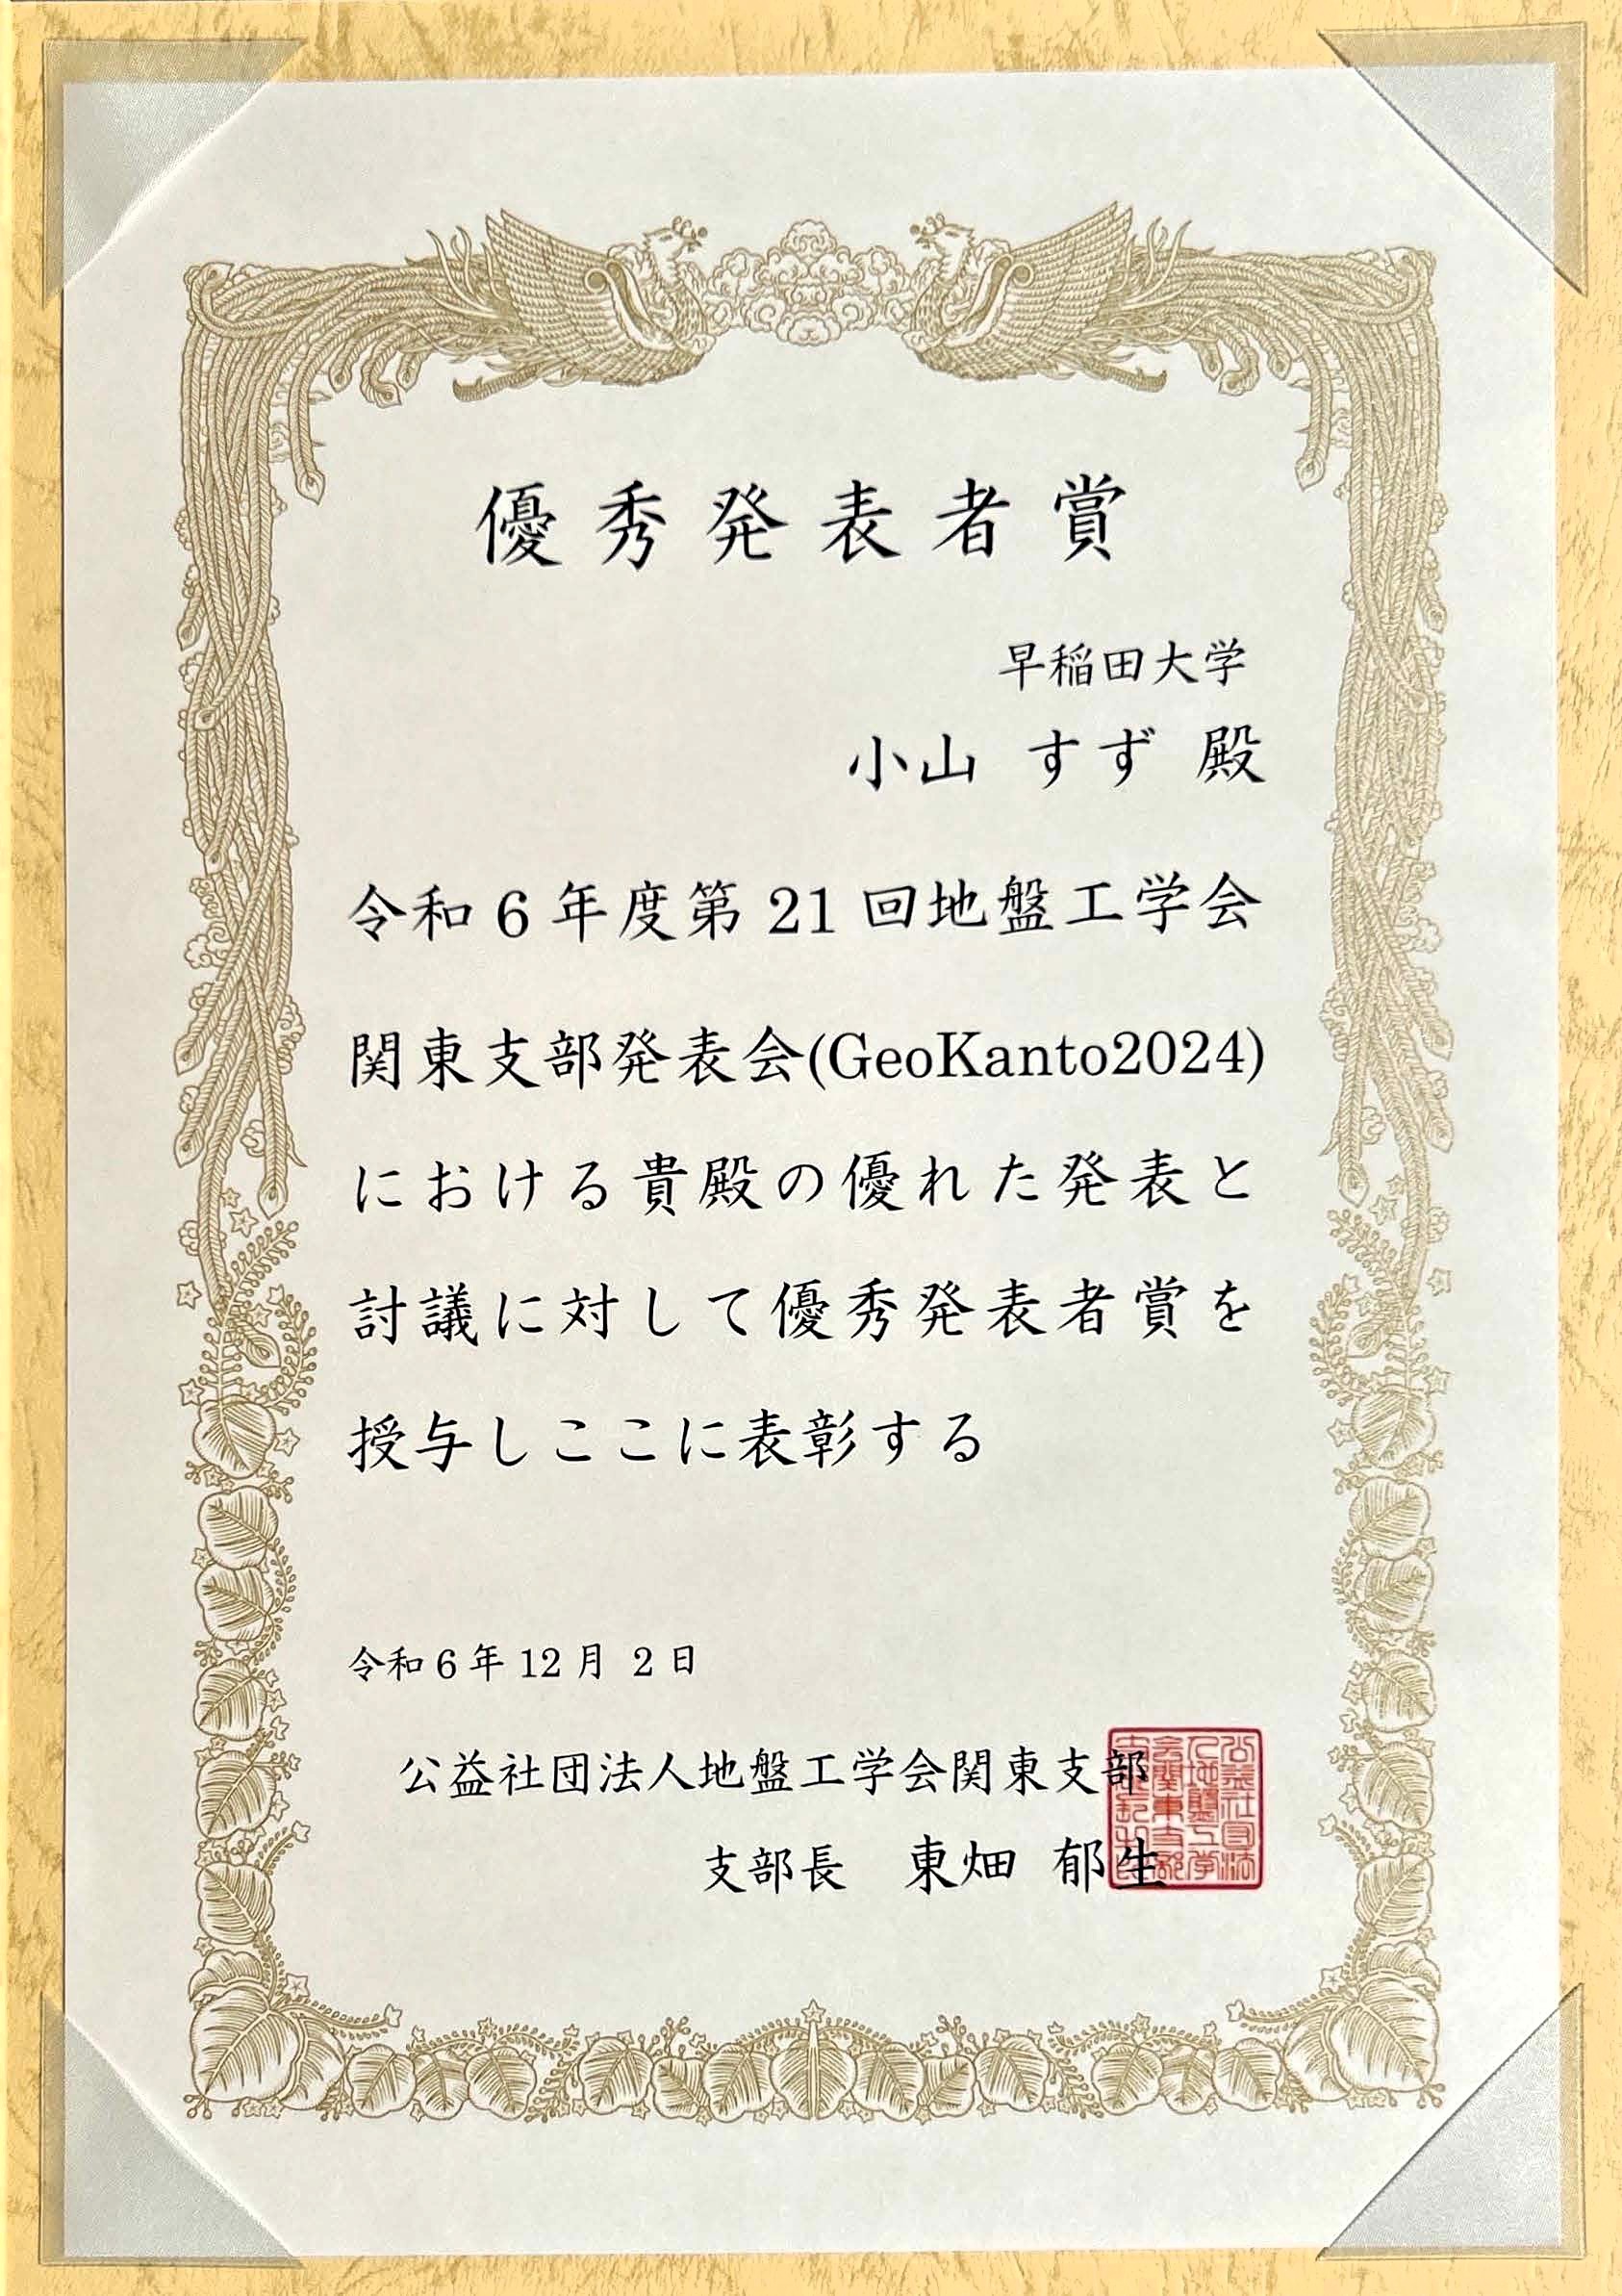 優秀発表者賞
早稲田大学
小山 すず 殿
令和6年度第21回地盤工学会
関東支部発表会(GeoKanto2024)
における貴殿の優れた発表と
討議に対して優秀発表者賞を
授与しここに表彰する
令和6年12月 2日
公益社団法人地盤工学会関東支部
支部長 東畑 郁生